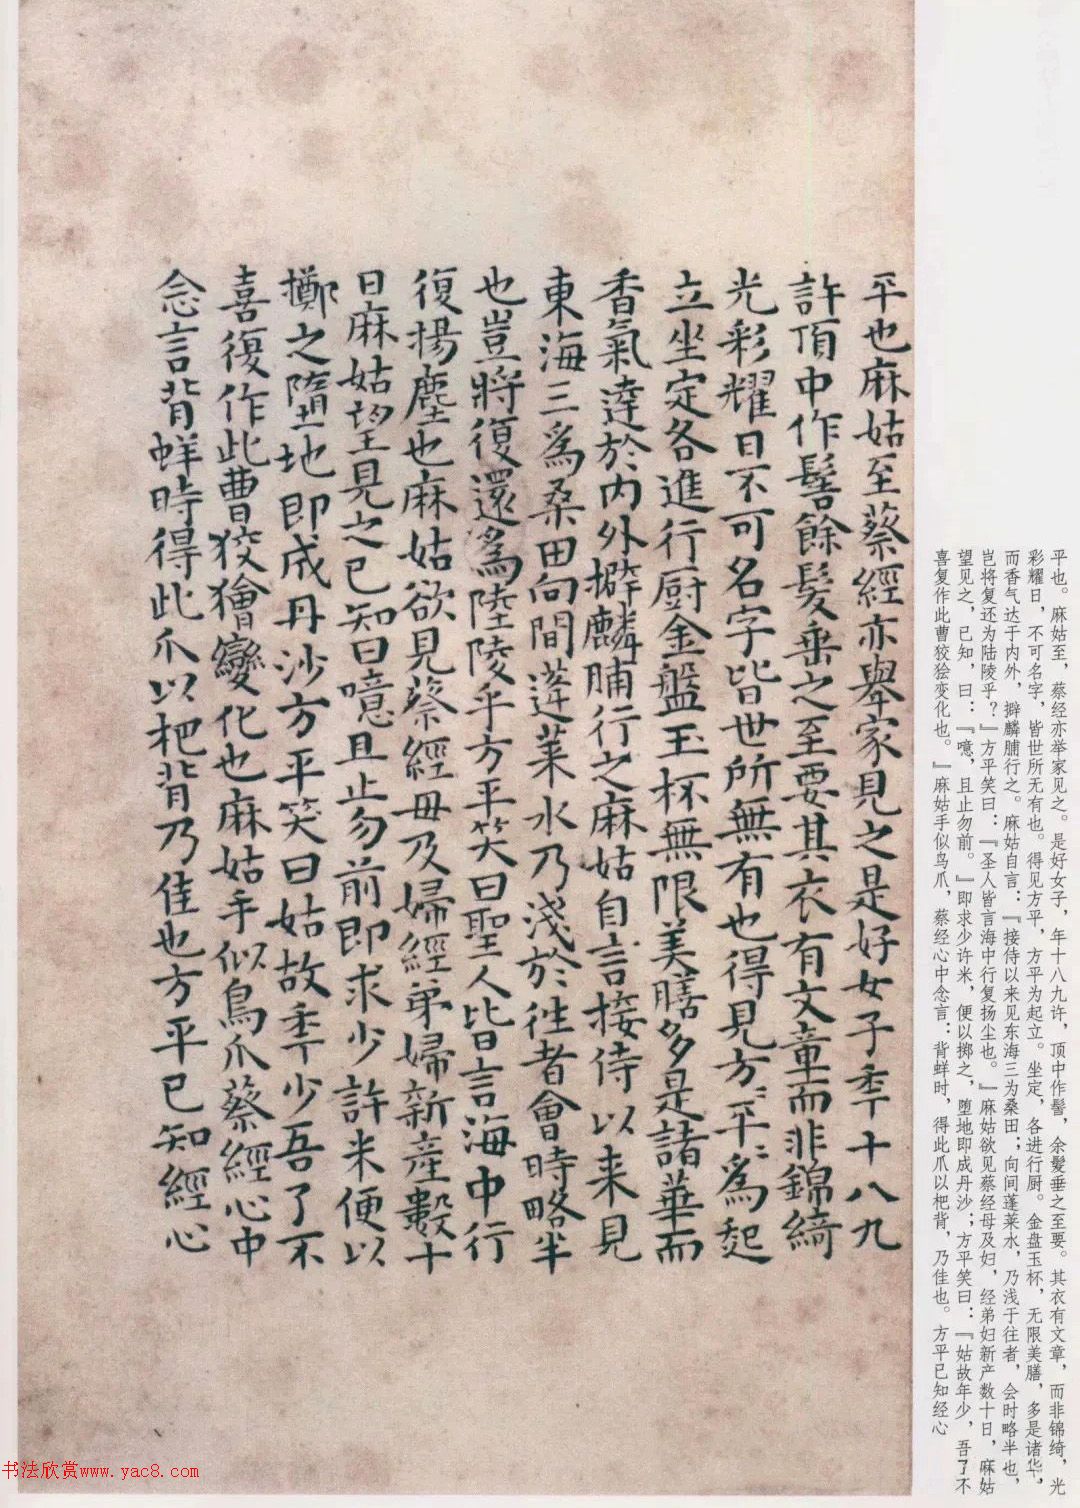 平也。麻姑至，蔡经亦举家见之。是好女子，年十八九许，顶中作髻，余髮垂之至要。其衣有文章，而非锦绮，光
彩耀日，不可名字，皆世所无有也。得见方平，方平为起立。坐定，各进行厨。金盘玉杯，无限美膳，多是诸华，
而香气达于内外，擗麟脯行之。麻姑自言：『接侍以来见东海三为桑田；向间蓬莱水，乃浅于往者，会时略半也，
岂将复还为陆陵乎？』方平笑曰：『圣人皆言海中行复扬尘也。』麻姑欲见蔡经母及妇，经弟妇新产数十日，麻姑
望见之，已知，曰：『噫，且止勿前。』即求少许米，便以掷之，堕地即成丹沙；方平笑曰：『姑故年少，吾了不
喜复作此曹狡狯变化也。』麻姑手似鸟爪，蔡经心中念言：背蛘时，得此爪以杷背，乃佳也。方平已知经心
平也麻姑至蔡經亦舉家見之是好女子秊十八九
許頂中作髻餘髮垂之至要其衣有文章而非錦綺
光彩耀日不可名字皆世所無有也得見方〻平〻為起
立坐定各進行厨金盤玉杯無限美膳多是諸華而
香氣達於内外擗麟脯行之麻姑自言接侍以来見
東海三為桑田向間蓬莱水乃淺於往者會時略半
也豈將復還為陸陵乎方平笑曰聖人皆言海中行
復揚塵也麻姑欲見蔡經母及婦經弟婦新產數十
日麻姑望見之已知曰噫且止勿前即求少許米便以
擲之墮地即成丹沙方平笑曰姑故秊少吾了不
喜復作此曹狡獪變化也麻姑手似鳥爪蔡經心中
念言背蛘時得此爪以杷背乃佳也方平已知經心
书法欣赏www.yac8.com